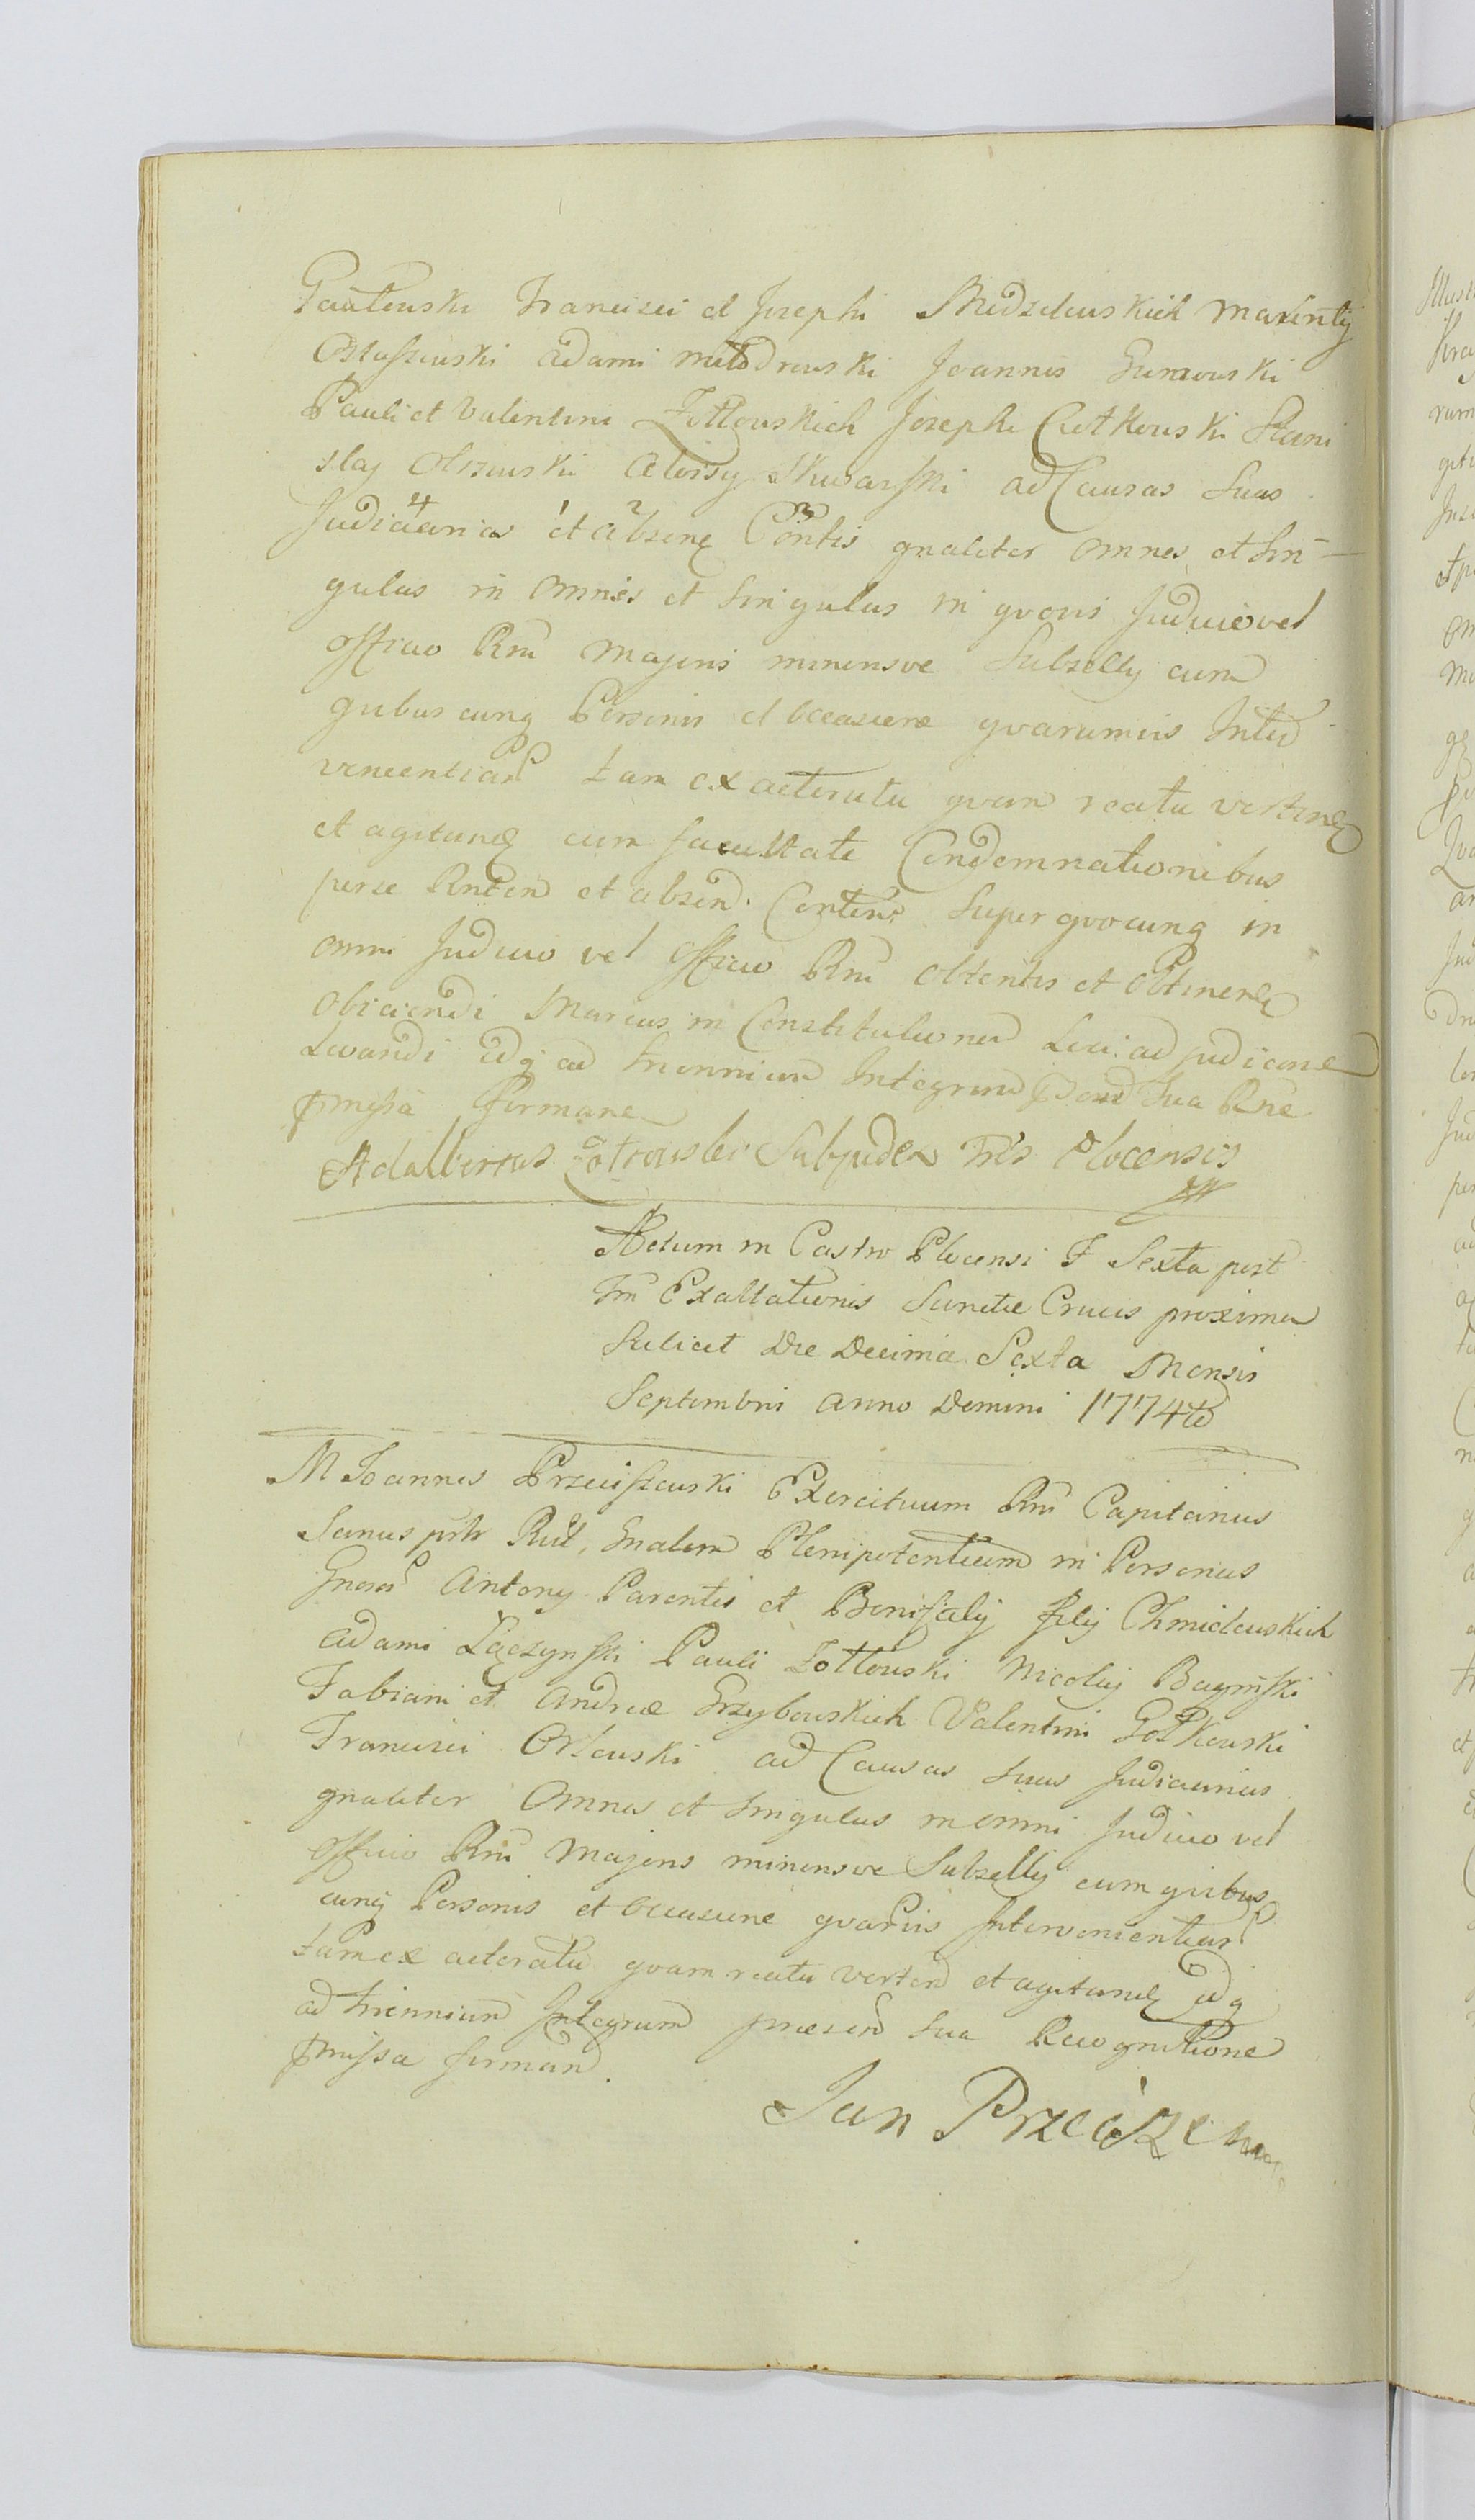 Francisci et Josephi Maxentij
Adami Młodrowski Joannis Gumowski
Pauli et Valentini Żółtowskich Josephi Cietkowski Stani
slaj Olszewski Aloisy Skwarski ad Causas Suas
Judiciarias et absen Contis gnaliter omnes et Sin-
gulas in omnes et Singulas in qvovis Judicio vel
officio Rni Majoris minorisve Subsellij cum
quibuscunq Personis et occasione qvarumvis Inter
venientiar tam ex actoratu qvam reatu verten
et agitand cum facultate Condemnationibus
per se Rnten et absen Conten Super qvocunq in
omni Judicio vel officio Rni obtentis et obtinend
obiiciendi Marcas in Constitutione Loci adjudicane
Levandi idq ad triennium Integrum Pnti Sua Rne
pmissa firmane
Adalbertus Żółtowski Subjudex Tris Plocensis
Actum in Castro Plocensi F Sexta post
Fm Exaltationis Sanctae Crucis proxima
Scilicet Die Decima Sexta Mensis
Septembris Anno Domini 1774to
M Joannes Przeciszewski Exercituum Rni Capitanius
Sanus pntr Rcit, Gnalem Plenipotentiam in Personas
Gnosor Antony Parentis et Bonifacij filij Chmielewskich
Adami Łączynski Pauli Żółtowski Nicolaj Baginski
Fabiani et Andreae Grzybowskich Valentini Goskowski
Francisci Orłowski ad Causas Suas Judiciarias
gnaliter Omnes et Singulas in omni Judicio vel
officio Rni Majoris minorisve Subsellij cum qvibus
cunq Personis et occasione qvarvis Intervenientiar
tam ex actoratu qvam reatu verten et agitand idq
ad triennium Integrum praesen Sua Recognitione
pmissa firman.
Jan Przeciszew